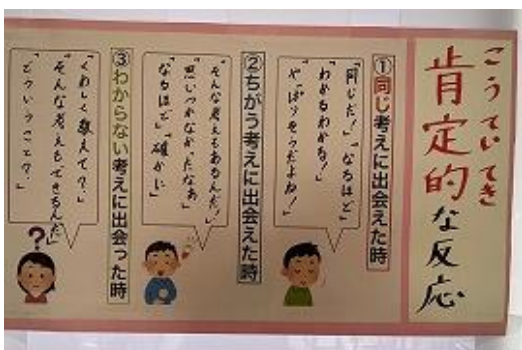 こうていてき
肯定的な反応
①同じ考えに出会えた時
「同じだ!」「なるほど」
「わかるわかる!」
「やっぱりそうだよね!」
②ちがう考えに出会えた時
「そんな考えもあるんだ!」
「思いつかなかったなあ」
「なるほど」「確かに」
③わからない考えに出会った時
「くわしく教えて?」
「そんな考えもできるんだ」
「どういうこと?」
?